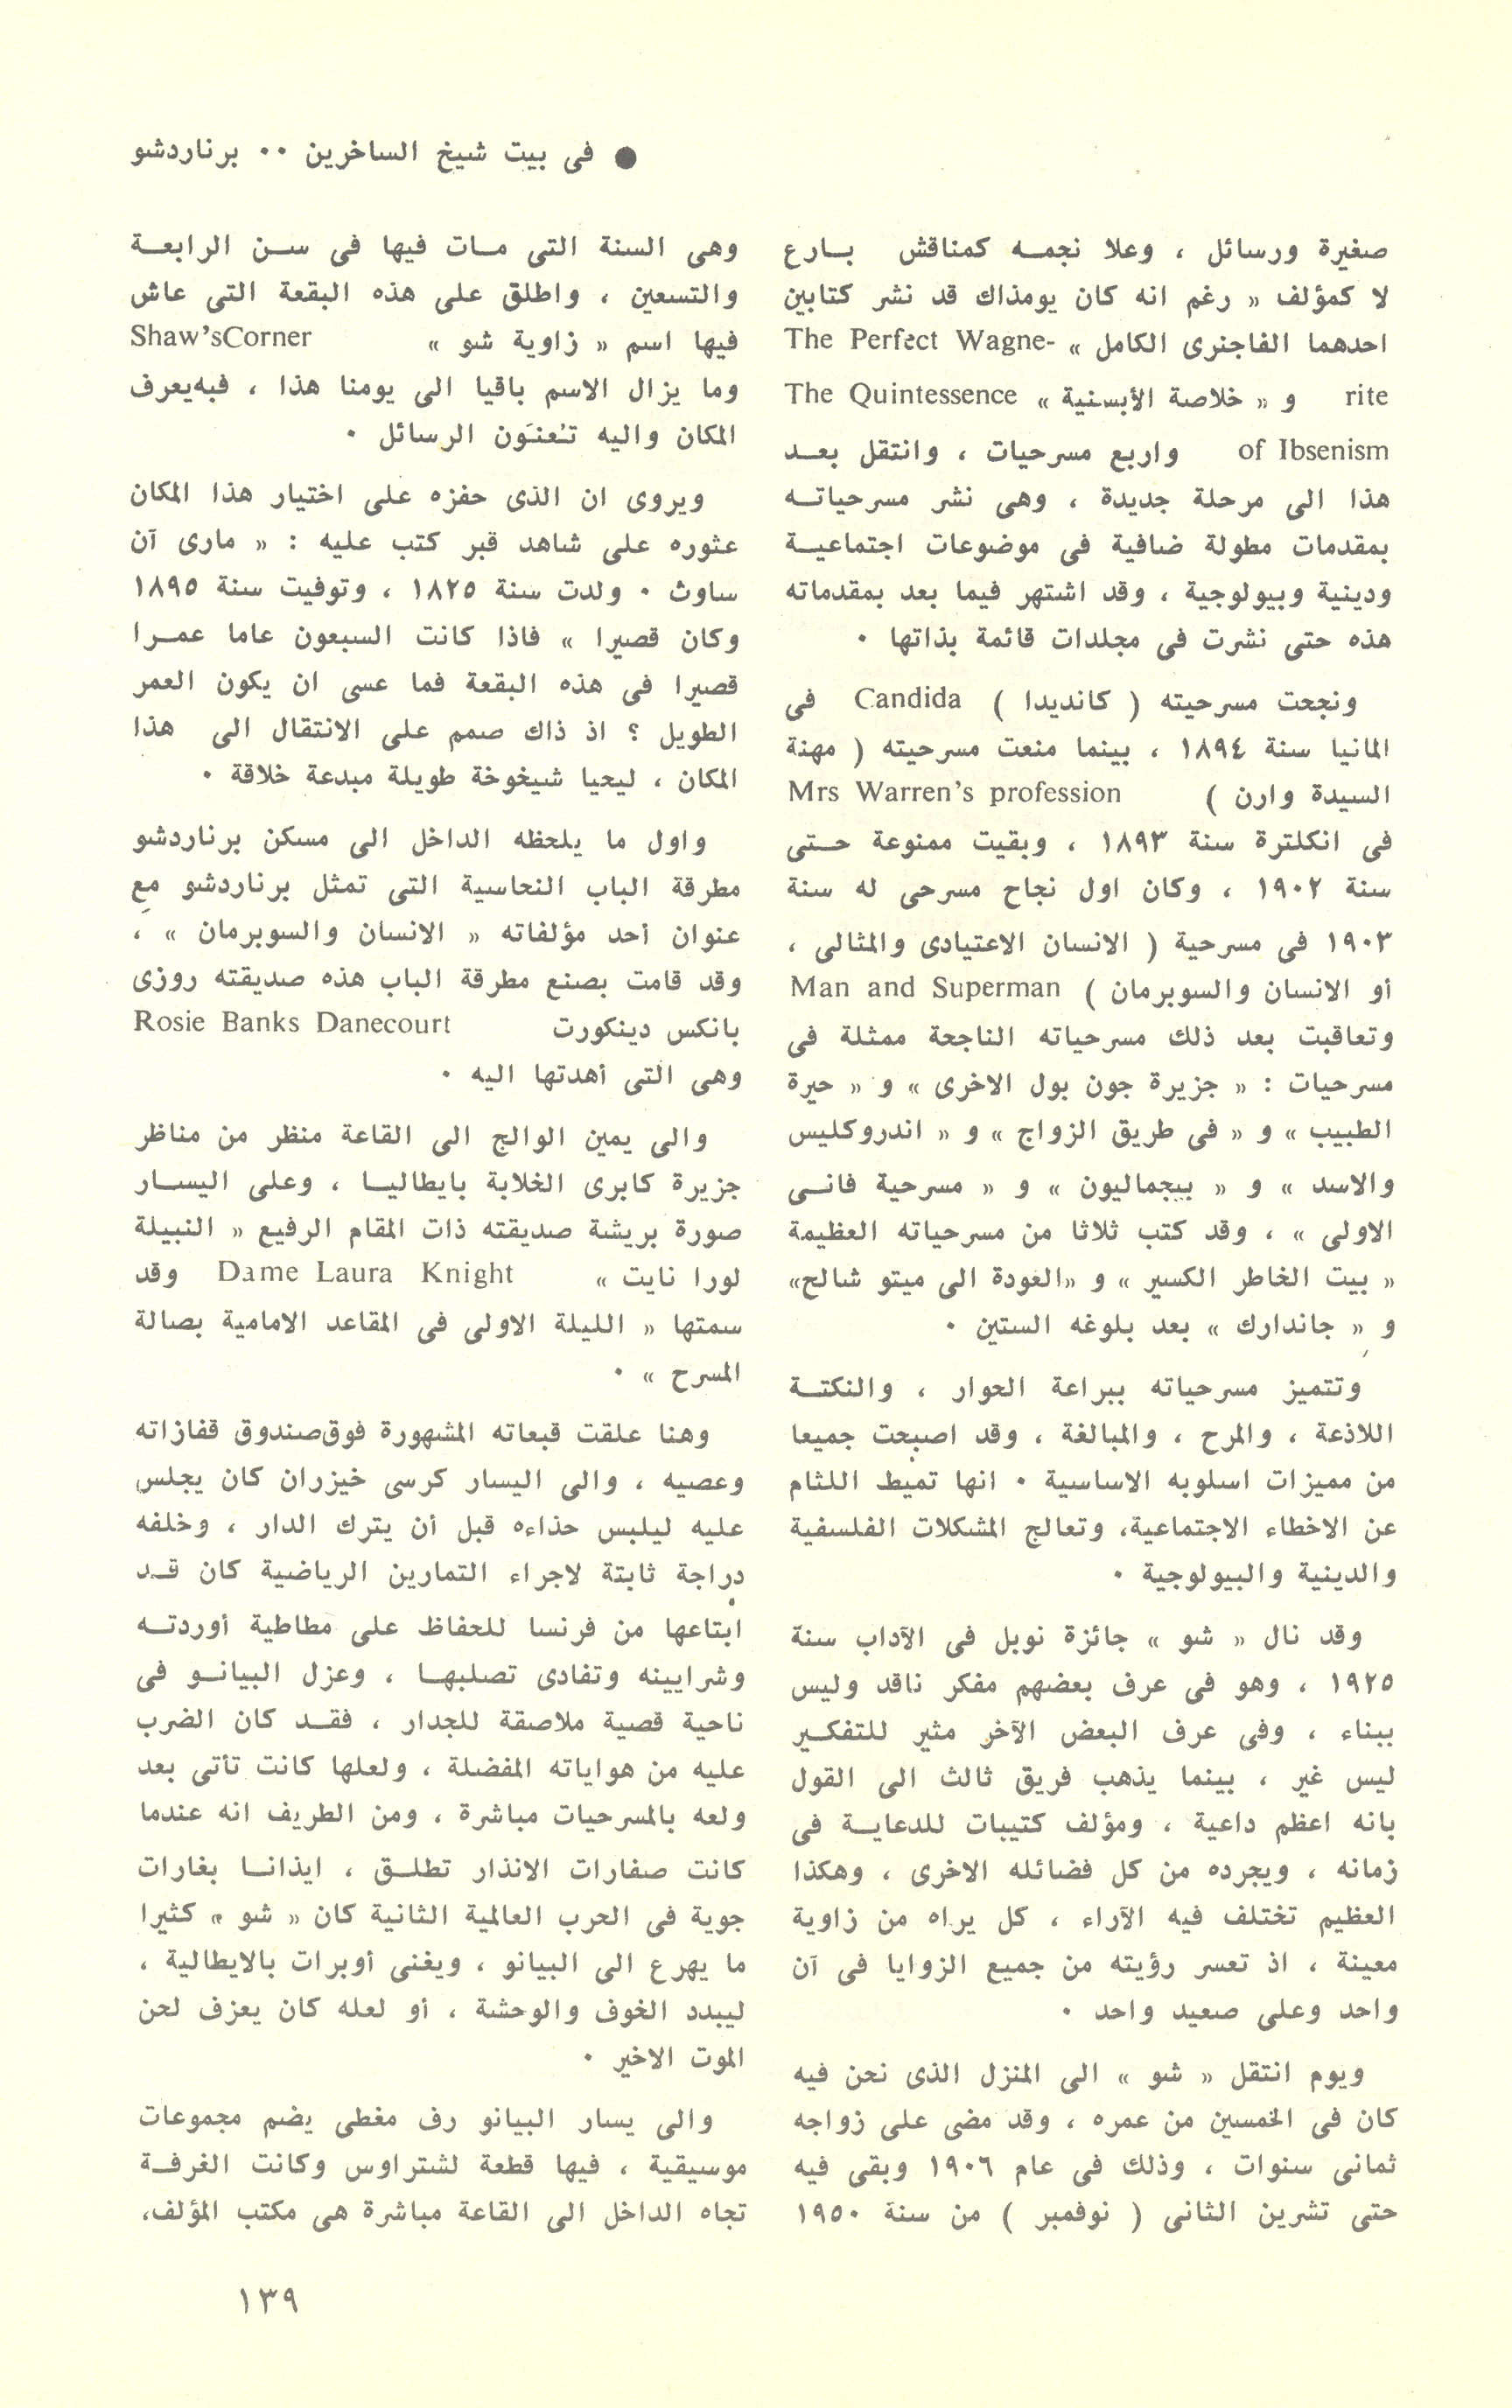 ● فى بيت شيخ الساخرين ٠٠ برناردشو
صغيرة ورسائل ، وعلا نجمـه كمناقش بـارع
لا كمؤلف « رغم انه كان يومذاك قد نشر كتابين
احدهما الفاجنرى الكامل » The Perfect Wagne-
rite و « خلاصة الأبسنية » The Quintessence
of Ibsenism واربع مسرحيات ، وانتقل بعـد
هذا الى مرحلة جديدة ، وهى نشر مسرحياتـه
بمقدمات مطولة ضافية فى موضوعات اجتماعيـة
ودينية وبيولوجية ، وقد اشتهر فيما بعد بمقدماته
هذه حتى نشرت فى مجلدات قائمة بذاتها ٠
ونجحت مسرحيته ( كانديدا ) Candida فى
المانيا سنة ١٨٩٤ ، بينما منعت مسرحيته ( مهنة
السيدة وارن ) Mrs Warren's profession
فى انكلترة سنة ١٨٩٣ ، وبقيت ممنوعة حـتى
سنة ١٩٠٢ ، وكان اول نجاح مسرحى له سنة
١٩٠٣ فى مسرحية ( الانسان الاعتيادى والمثالى ،
أو الانسان والسوبرمان ) Man and Superman
وتعاقبت بعد ذلك مسرحياته الناجحة ممثلة فى
مسرحيات : « جزيرة جون بول الاخرى » و « حيرة
الطبيب » و « فى طريق الزواج » و « اندروكليس
والاسد » و « بيجماليون » و « مسرحية فانـى
الاولى » ، وقد كتب ثلاثا من مسرحياته العظيمة
« بيت الخاطر الكسير » و «العودة الى ميتو شالح»
و « جاندارك » بعد بلوغه الستين ٠
وتتميز مسرحياته ببراعة الحوار ، والنكتـة
اللاذعة ، والمرح ، والمبالغة ، وقد اصبحت جميعا
من مميزات اسلوبه الاساسية ٠ انها تميط اللثام
عن الاخطاء الاجتماعية، وتعالج المشكلات الفلسفية
والدينية والبيولوجية ٠
وقد نال « شو » جائزة نوبل فى الآداب سنة
١٩٢٥ ، وهو فى عرف بعضهم مفكر ناقد وليس
ببناء ، وفى عرف البعض الآخر مثير للتفكـير
ليس غير ، بينما يذهب فريق ثالث الى القول
بانه اعظم داعية ، ومؤلف كتيبات للدعايـة فى
زمانه ، ويجرده من كل فضائله الاخرى ، وهكذا
العظيم تختلف فيه الآراء ، كل يراه من زاوية
معينة ، اذ تعسر رؤيته من جميع الزوايا فى آن
واحد وعلى صعيد واحد ٠
ويوم انتقل « شو » الى المنزل الذى نحن فيه
كان فى الخمسين من عمره ، وقد مضى على زواجه
ثمانى سنوات ، وذلك فى عام ١٩٠٦ وبقى فيه
حتى تشرين الثانى ( نوفمبر ) من سنة ١٩٥٠
وهى السنة التى مـات فيها فى سـن الرابعـة
والتسعين ، واطلق على هذه البقعة التى عاش
فيها اسم « زاوية شو » Shaw'sCorner
وما يزال الاسم باقيا الى يومنا هذا ، فبه‌يعرف
المكان واليه تُعنوَن الرسائل ٠
ويروى ان الذى حفزه على اختيار هذا المكان
عثوره على شاهد قبر كتب عليه : « مارى آن
ساوث ٠ ولدت سنة ١٨٢٥ ، وتوفيت سنة ١٨٩٥
وكان قصيرا » فاذا كانت السبعون عاما عمـرا
قصيرا فى هذه البقعة فما عسى ان يكون العمر
الطويل ؟ اذ ذاك صمم على الانتقال الى هذا
المكان ، ليحيا شيخوخة طويلة مبدعة خلاقة ٠
واول ما يلحظه الداخل الى مسكن برناردشو
مطرقة الباب النحاسية التى تمثل برناردشو مع
عنوان أحد مؤلفاته « الانسان والسوبرمان » ،
وقد قامت بصنع مطرقة الباب هذه صديقته روزى
بانكس دينكورت Rosie Banks Danecourt
وهى التى أهدتها اليه ٠
والى يمين الوالج الى القاعة منظر من مناظر
جزيرة كابرى الخلابة بايطاليـا ، وعلى اليسـار
صورة بريشة صديقته ذات المقام الرفيع « النبيلة
لورا نايت » Dame Laura Knight وقد
سمتها « الليلة الاولى فى المقاعد الامامية بصالة
المسرح » ٠
وهنا علقت قبعاته المشهورة فوق‌صندوق قفازاته
وعصيه ، والى اليسار كرسى خيزران كان يجلس
عليه ليلبس حذاءه قبل أن يترك الدار ، وخلفه
دراجة ثابتة لاجراء التمارين الرياضية كان قـد
ابتاعها من فرنسا للحفاظ على مطاطية أوردتـه
وشرايينه وتفادى تصلبهـا ، وعزل البيانـو فى
ناحية قصية ملاصقة للجدار ، فقـد كان الضرب
عليه من هواياته المفضلة ، ولعلها كانت تأتى بعد
ولعه بالمسرحيات مباشرة ، ومن الطريف انه عندما
كانت صفارات الانذار تطلـق ، ايذانـا بغارات
جوية فى الحرب العالمية الثانية كان « شو » كثيرا
ما يهرع الى البيانو ، ويغنى أوبرات بالايطالية ،
ليبدد الخوف والوحشة ، أو لعله كان يعزف لحن
الموت الاخير ٠
والى يسار البيانو رف مغطى يضم مجموعات
موسيقية ، فيها قطعة لشتراوس وكانت الغرفـة
تجاه الداخل الى القاعة مباشرة هى مكتب المؤلف،
١٣٩